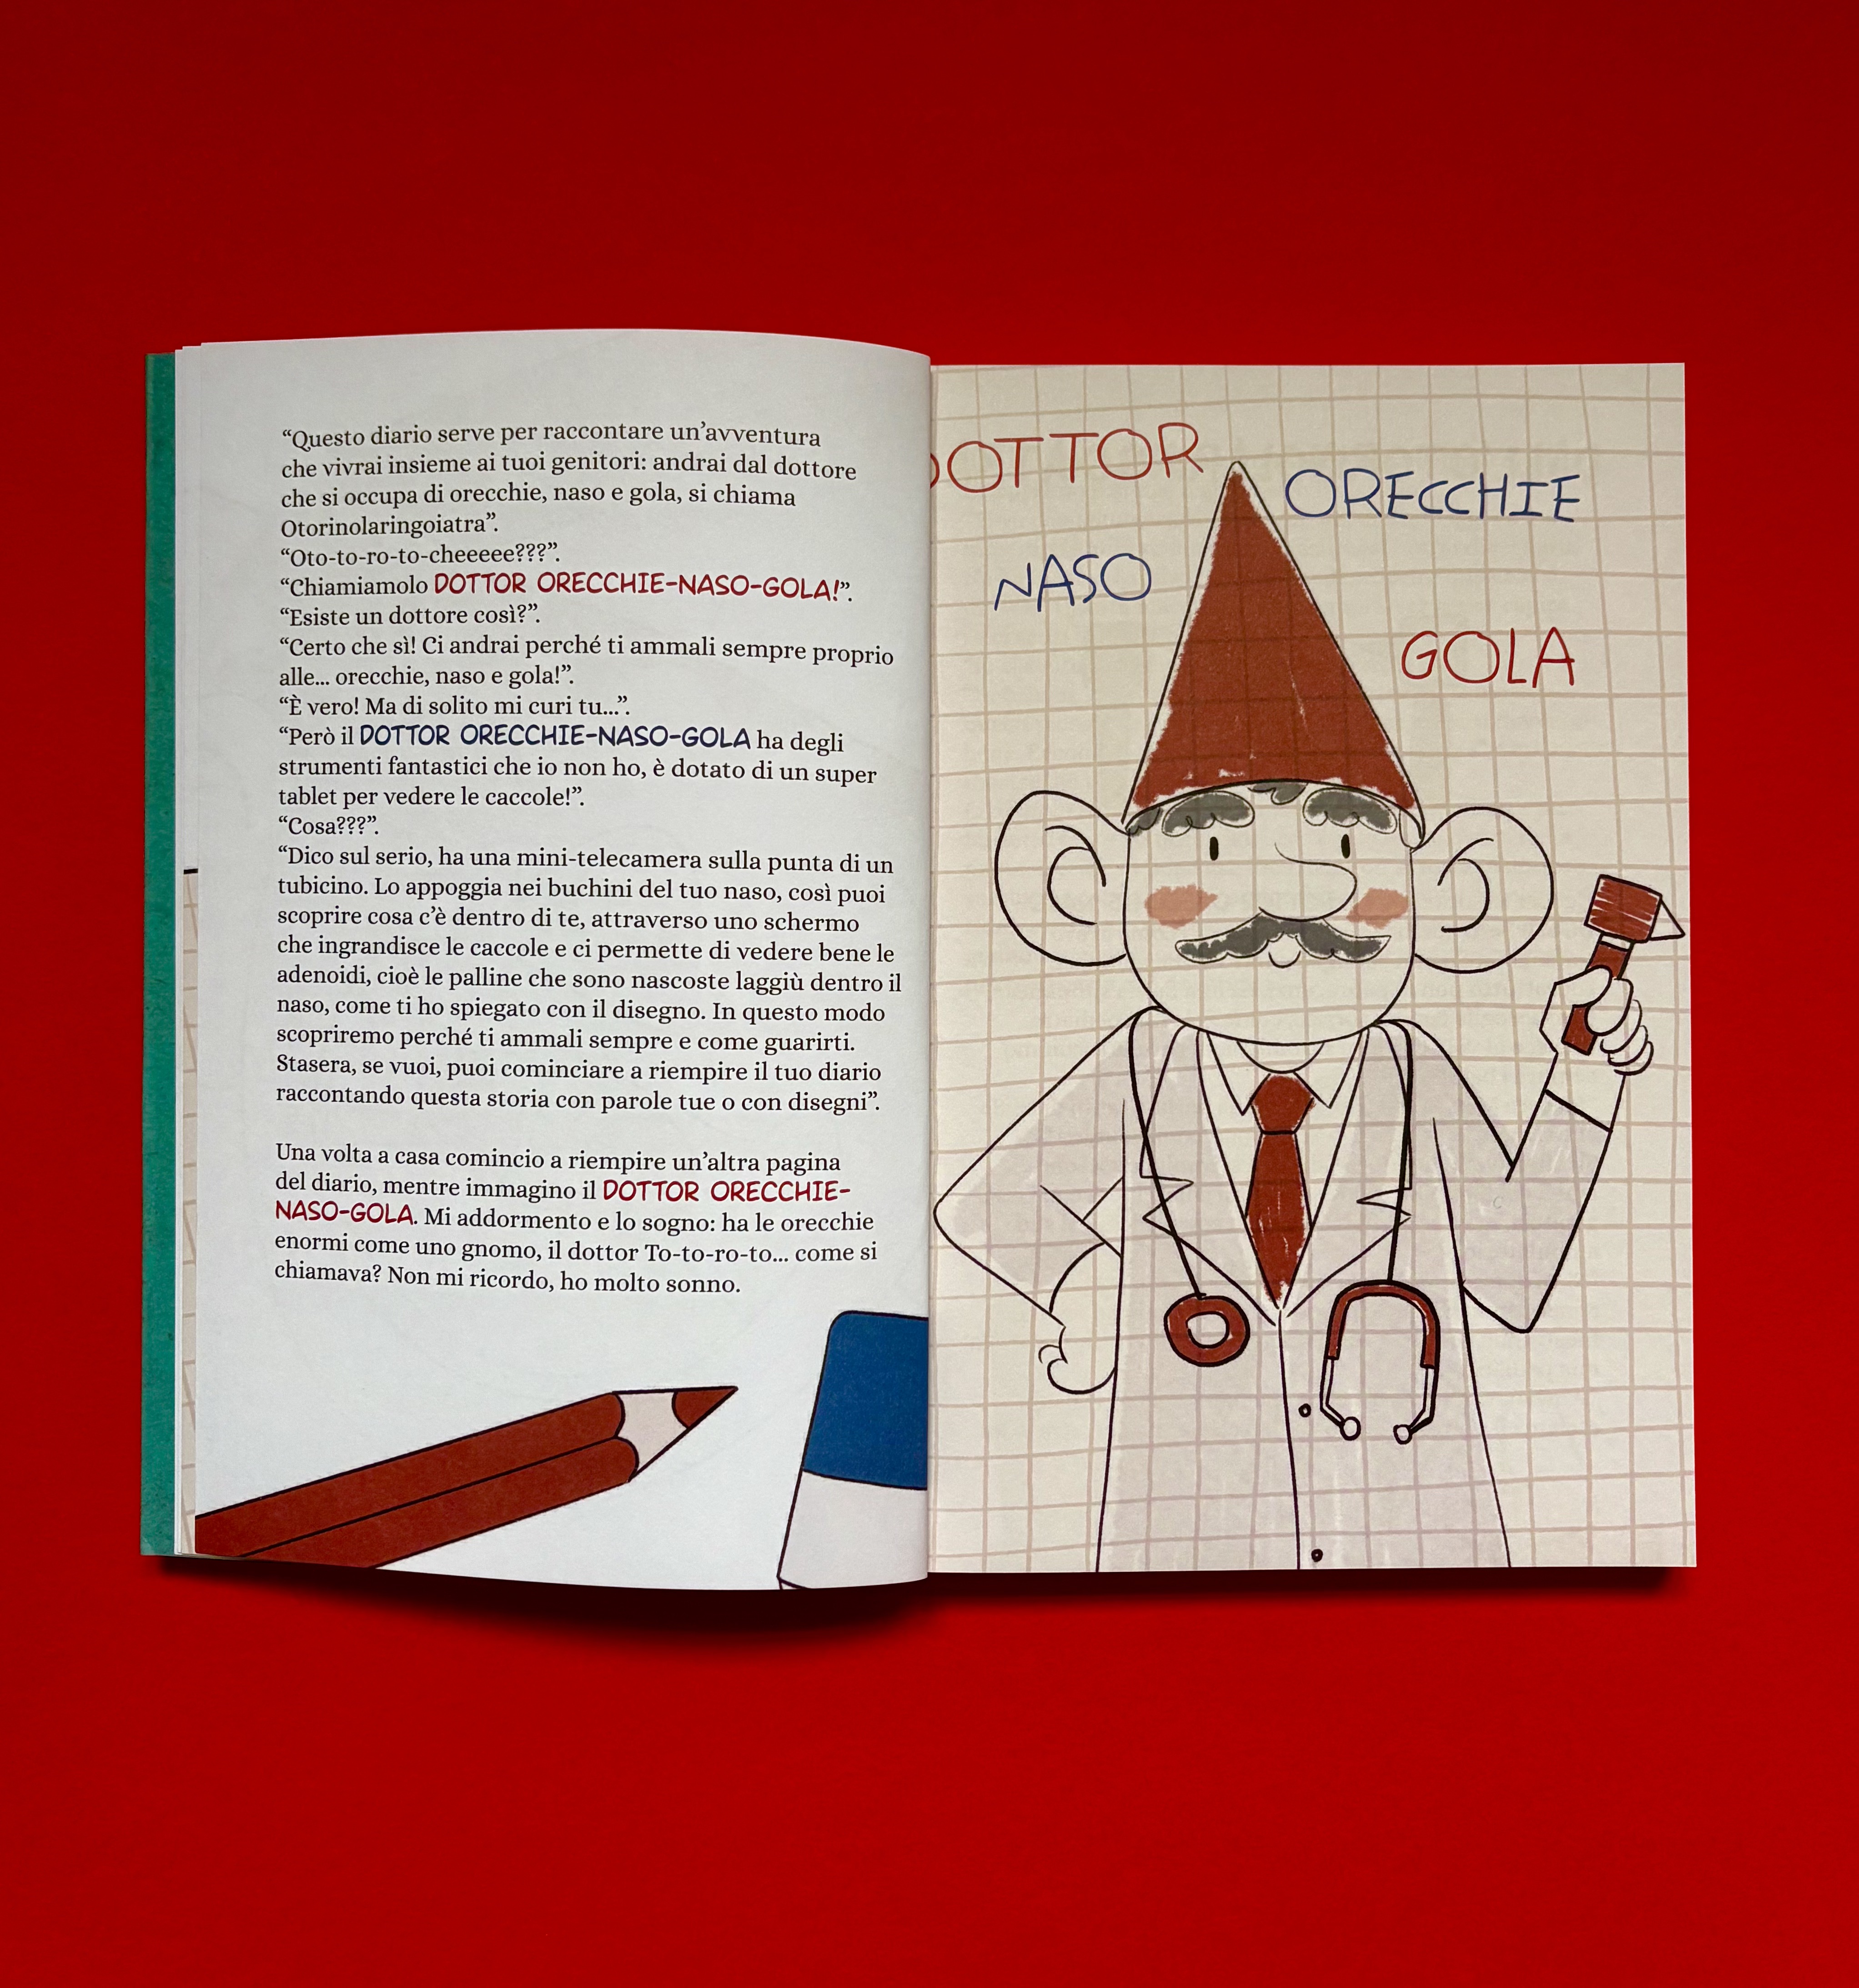 “Questo diario serve per raccontare un’avventura
che vivrai insieme ai tuoi genitori: andrai dal dottore
che si occupa di orecchie, naso e gola, si chiama
Otorinolaringoiatra”.
“Oto-to-ro-to-cheeeee???”.
“Chiamiamolo DOTTOR ORECCHIE-NASO-GOLA!”.
“Esiste un dottore così?”.
“Certo che sì! Ci andrai perché ti ammali sempre proprio
alle... orecchie, naso e gola!”.
“È vero! Ma di solito mi curi tu...”.
“Però il DOTTOR ORECCHIE-NASO-GOLA ha degli
strumenti fantastici che io non ho, è dotato di un super
tablet per vedere le caccole!”.
“Cosa???”.
“Dico sul serio, ha una mini-telecamera sulla punta di un
tubicino. Lo appoggia nei buchini del tuo naso, così puoi
scoprire cosa c’è dentro di te, attraverso uno schermo
che ingrandisce le caccole e ci permette di vedere bene le
adenoidi, cioè le palline che sono nascoste laggiù dentro il
naso, come ti ho spiegato con il disegno. In questo modo
scopriremo perché ti ammali sempre e come guarirti.
Stasera, se vuoi, puoi cominciare a riempire il tuo diario
raccontando questa storia con parole tue o con disegni”.
Una volta a casa comincio a riempire un’altra pagina
del diario, mentre immagino il DOTTOR ORECCHIE-
NASO-GOLA. Mi addormento e lo sogno: ha le orecchie
enormi come uno gnomo, il dottor To-to-ro-to... come si
chiamava? Non mi ricordo, ho molto sonno.
DOTTOR
ORECCHIE
NASO
GOLA